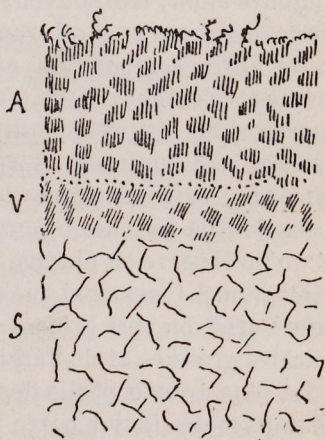 A
V
S